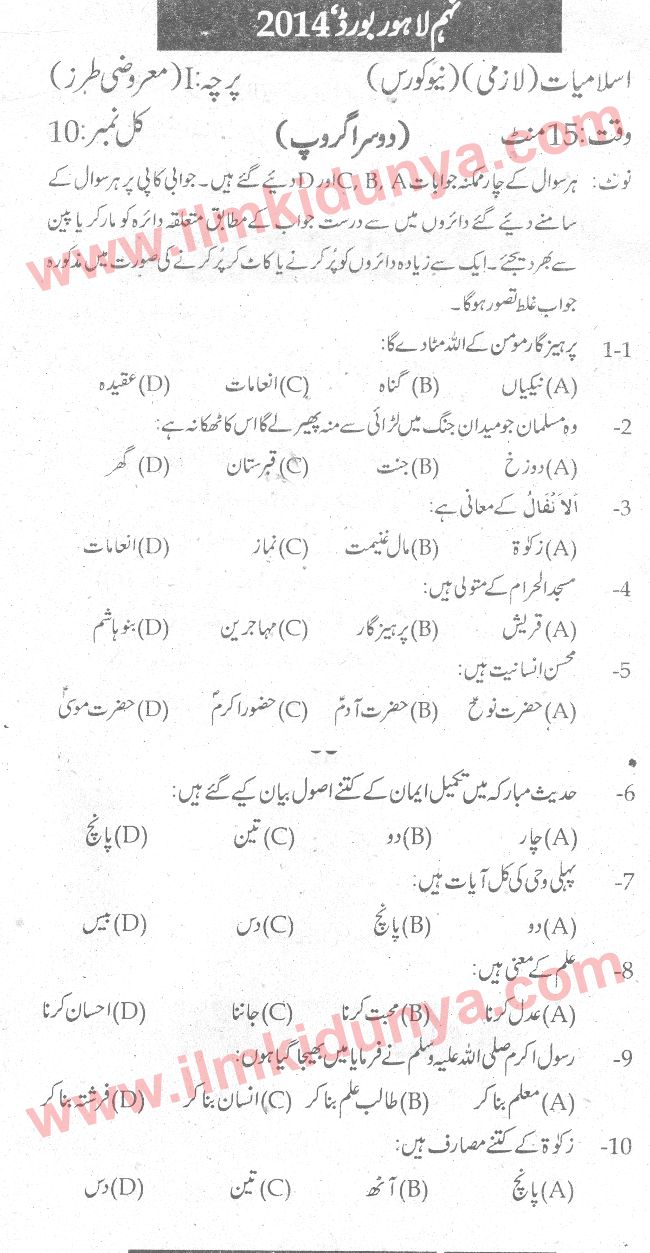 نہم لاہور بورڈ، 2014
اسلامیات (لازمی) (نیو کورس) پرچہ: I (معروضی طرز)
وقت: 15 منٹ (دوسرا گروپ) کل نمبر: 10
نوٹ: ہر سوال کے چار ممکنہ جوابات C, B, A اور D دیئے گئے ہیں۔ جوابی کاپی پر ہر سوال کے
سامنے دیئے گئے دائروں میں سے درست جواب کے مطابق متعلقہ دائرہ کو مارکر یا پین
سے بھر دیجئے۔ ایک سے زیادہ دائروں کو پُر کرنے یا کاٹ کر پُر کرنے کی صورت میں مذکورہ
جواب غلط تصور ہوگا۔
1-1 پرہیزگار مومن کے اللہ مٹا دے گا:
(A) نیکیاں (B) گناہ (C) انعامات (D) عقیدہ
2- وہ مسلمان جو میدان جنگ میں لڑائی سے منہ پھیر لے گا اس کا ٹھکانہ ہے:
(A) دوزخ (B) جنت (C) قبرستان (D) گھر
3- اَلاَنْفَالُ کے معانی ہے:
(A) زکوٰۃ (B) مال غنیمت (C) نماز (D) انعامات
4- مسجد الحرام کے متولی ہیں:
(A) قریش (B) پرہیزگار (C) مہاجرین (D) بنو ہاشم
5- محسن انسانیت ہیں:
(A) حضرت نوحؑ (B) حضرت آدمؑ (C) حضور اکرمؐ (D) حضرت موسیٰؑ
6- حدیث مبارکہ میں تکمیل ایمان کے کتنے اصول بیان کیے گئے ہیں:
(A) چار (B) دو (C) تین (D) پانچ
7- پہلی وحی کی کل آیات ہیں:
(A) دو (B) پانچ (C) دس (D) بیس
8- علم کے معنی ہیں:
(A) عدل کرنا (B) محبت کرنا (C) جاننا (D) احسان کرنا
9- رسول اکرم صلی اللہ علیہ وسلم نے فرمایا میں بھیجا گیا ہوں:
(A) معلم بنا کر (B) طالب علم بنا کر (C) انسان بنا کر (D) فرشتہ بنا کر
10- زکوٰۃ کے کتنے مصارف ہیں:
(A) پانچ (B) آٹھ (C) تین (D) دس
www.ilmkidunya.com
www.ilmkidunya.com